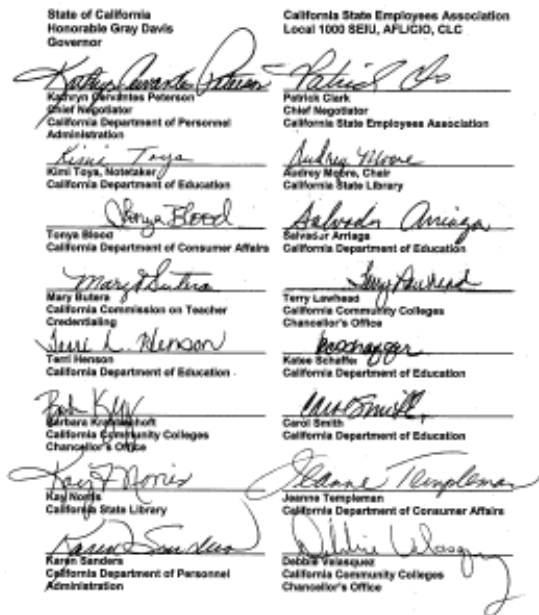 State of California
Honorable Gray Davis
Governor
Kathryn Cervantes Peterson
Kathryn Cervantes Peterson
Chief Negotiator
California Department of Personnel
Administration
Kimi Toya
Kimi Toya, Notetaker
California Department of Education
Tonya Blood
Tonya Blood
California Department of Consumer Affairs
Mary Butera
Mary Butera
California Commission on Teacher
Credentialing
Terri L. Henson
Terri Henson
California Department of Education
Barbara
California Community Colleges
Chancellor's Office
Kay Norris
Kay Norris
California State Library
Karen Sanders
Karen Sanders
California Department of Personnel
Administration
California State Employees Association
Local 1000 SEIU, AFL/CIO, CLC
Patrick
Patrick Clark
Chief Negotiator
California State Employees Association
Audrey Moore
Audrey Moore, Chair
California State Library
Salvador Arriaga
Salvador Arriaga
California Department of Education
Terry Lawhead
Terry Lawhead
California Community Colleges
Chancellor's Office
Katee Schaffer
California Department of Education
Carol Smith
Carol Smith
California Department of Education
Jeanne Templeman
Jeanne Templeman
California Department of Consumer Affairs
Debbie Velasquez
Debbie Velasquez
California Community Colleges
Chancellor's Office